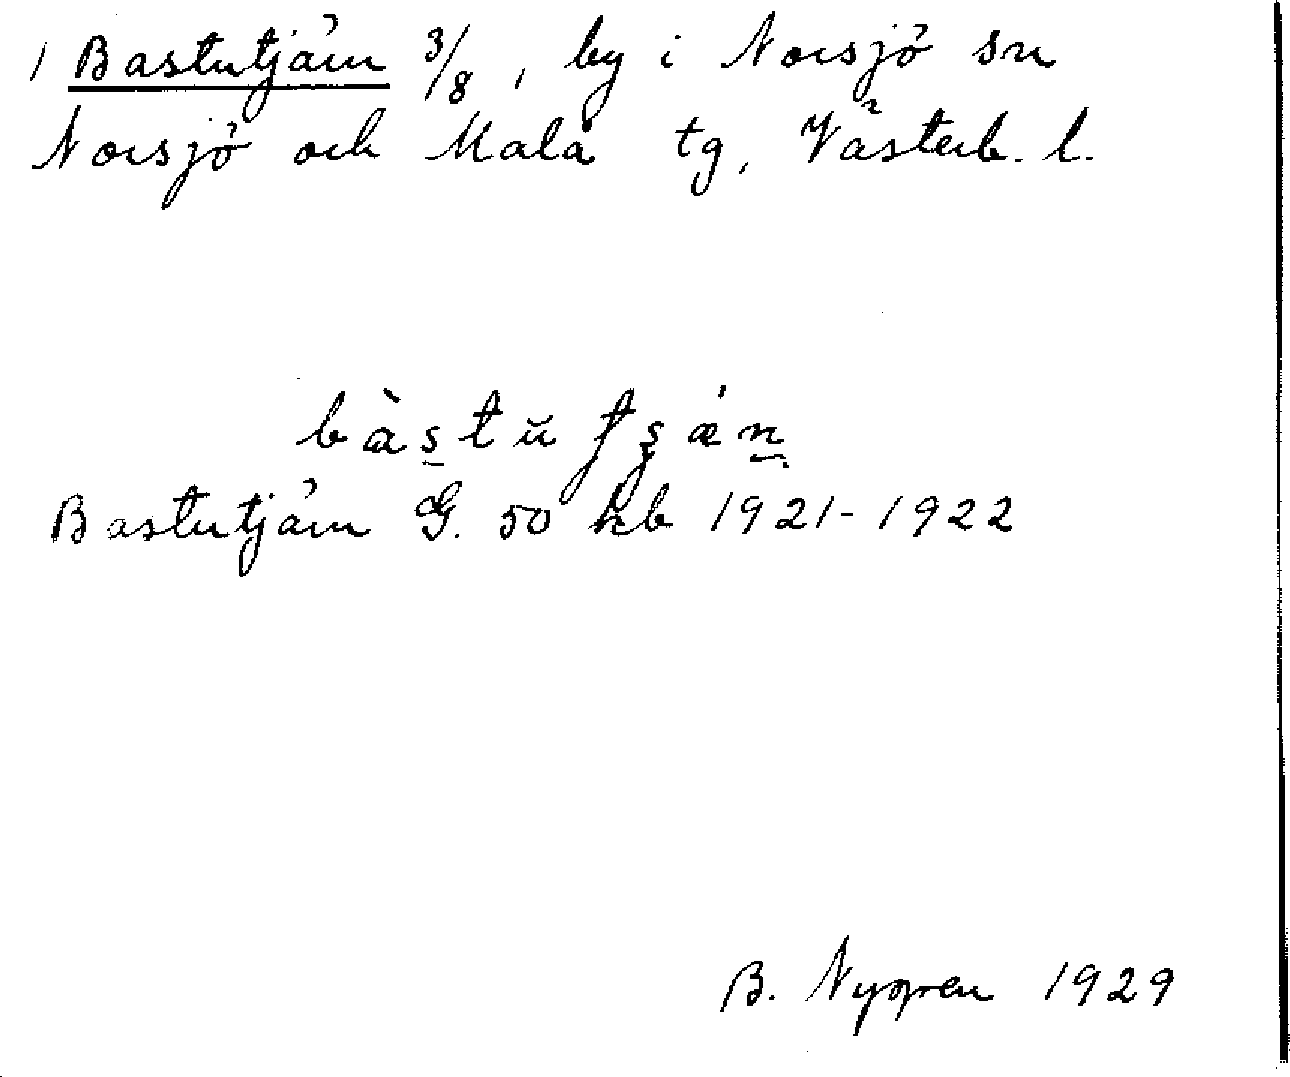 1 Bastutjärn 3/8, by i Norsjö sn
Norsjö och Malå tg, Västerb. l.
bàstŭtʂǽn
Bastutjärn G. 50 kb 1921-1922
B. Nyppen 1929